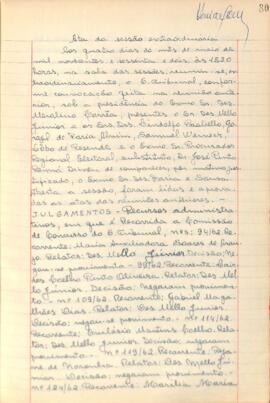 30
Ata da sessão extraordinária
Aos quatro dias do mês de maio de
mil novecentos e sessenta e dois, às 1820
horas, na sala das sessões, reuniu-se, ex-
traordinariamente, o E. Tribunal, confor-
me convocação feita na reunião ante-
rior, sob a presidência do Exmo Sr. Des.
Marcelino Corrêa, presentes o Sr. Des. Mello
Júnior e os Srs. Drs. Lindolfo Paoliello, Jo-
raf de Faria Alvim, Samuel Werneck,
Cibbo de Rezende e o Exmo Sr. Procurador
Regional Eleitoral, substituto, Dr. José Pinto
Deixou de comparecer, por motivo jus-
tificado, o Exmo Sr. Des. Faria e Sousa.
Aberta a sessão, foram lidas e aprova-
das as atas das reuniões anteriores.
JULGAMENTOS - Recursos administra-
tivos, em que é Recorrida a Comissão
de Concurso do E. Tribunal, nºs: 94/62. Re-
corrente: Maria Auxiliadora Soares de Araú-
jo. Relator: Des. Mello Júnior. Decisão: Ne-
garam provimento. - 99/62. Recorrente: Car-
los Coelho Pinto Oliveira. Relator: Des. Mel-
lo Júnior. Decisão: Negaram provimen-
to. - Nº 109/62. Recorrente: Gabriel Maga-
lhães Dias. Relator: Des. Mello Júnior.
Decisão: negaram provimento. - Nº 114/62.
Recorrente: Martins Coelho. Relator:
Des. Mello Júnior. Decisão: negaram
provimento. - Nº 119/62. Recorrente: 
de Noronha. Relator: Des. Mello Jú-
nior. Decisão: negaram provimento. -
Nº 124/62. Recorrente: Marilia Maria